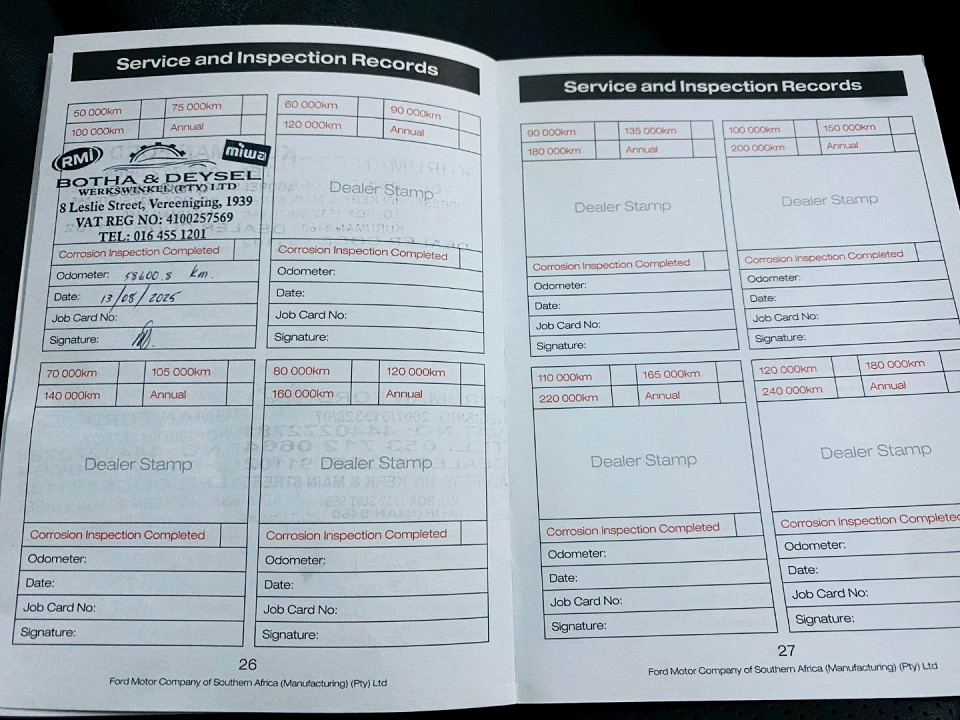 Service and Inspection Records
50 000km 75 000km
100 000km Annual
RMI miwa
BOTHA & DEYSEL
WERKSWINKEL (PTY) LTD
8 Leslie Street, Vereeniging, 1939
VAT REG NO: 4100257569
TEL: 016 455 1201
Corrosion Inspection Completed
Odometer: 58600.8 km.
Date: 13/08/2025
Job Card No:
Signature:
60 000km 90 000km
120 000km Annual
Dealer Stamp
Corrosion Inspection Completed
Odometer:
Date:
Job Card No:
Signature:
70 000km 105 000km
140 000km Annual
Dealer Stamp
Corrosion Inspection Completed
Odometer:
Date:
Job Card No:
Signature:
80 000km 120 000km
160 000km Annual
Dealer Stamp
Corrosion Inspection Completed
Odometer:
Date:
Job Card No:
Signature:
26
Ford Motor Company of Southern Africa (Manufacturing) (Pty) Ltd
Service and Inspection Records
90 000km 135 000km
180 000km Annual
Dealer Stamp
Corrosion Inspection Completed
Odometer:
Date:
Job Card No:
Signature:
100 000km 150 000km
200 000km Annual
Dealer Stamp
Corrosion Inspection Completed
Odometer:
Date:
Job Card No:
Signature:
110 000km 165 000km
220 000km Annual
Dealer Stamp
Corrosion Inspection Completed
Odometer:
Date:
Job Card No:
Signature:
120 000km 180 000km
240 000km Annual
Dealer Stamp
Corrosion Inspection Completed
Odometer:
Date:
Job Card No:
Signature:
27
Ford Motor Company of Southern Africa (Manufacturing) (Pty) Ltd